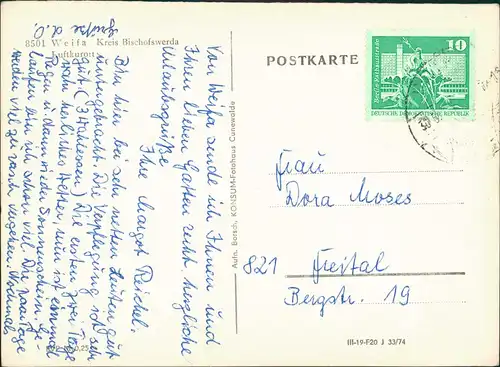 8501 Weifa Kreis Bischofswerda
Luftkurort
Von Weifa sende ich Ihnen und
Ihrem lieben Gatten recht herzliche
Urlaubsgrüße
Ihre Margot Reichel.
Bin hier bei sehr netten Leuten gut
untergebracht. Die Verpflegung ist sehr
gut (3 Mahlzeiten) Die ersten zwei Tage
war herrliches Wetter, nun ist einmal
Regen u. dann wieder Sonnenschein. Ge-
laufen bin ich schon viel. Die paar Tage
werden viel zu rasch vergehen. Nochmals
Grüße d. O.
Aufn. Borsch, KONSUM-Fotohaus Cunewalde
POSTKARTE
10
Berlin, Rathausstraße
DEUTSCHE DEMOKRATISCHE REPUBLIK
Frau
Dora Moses
821 Freital
Bergstr. 19
III-19-F20 J 33/74